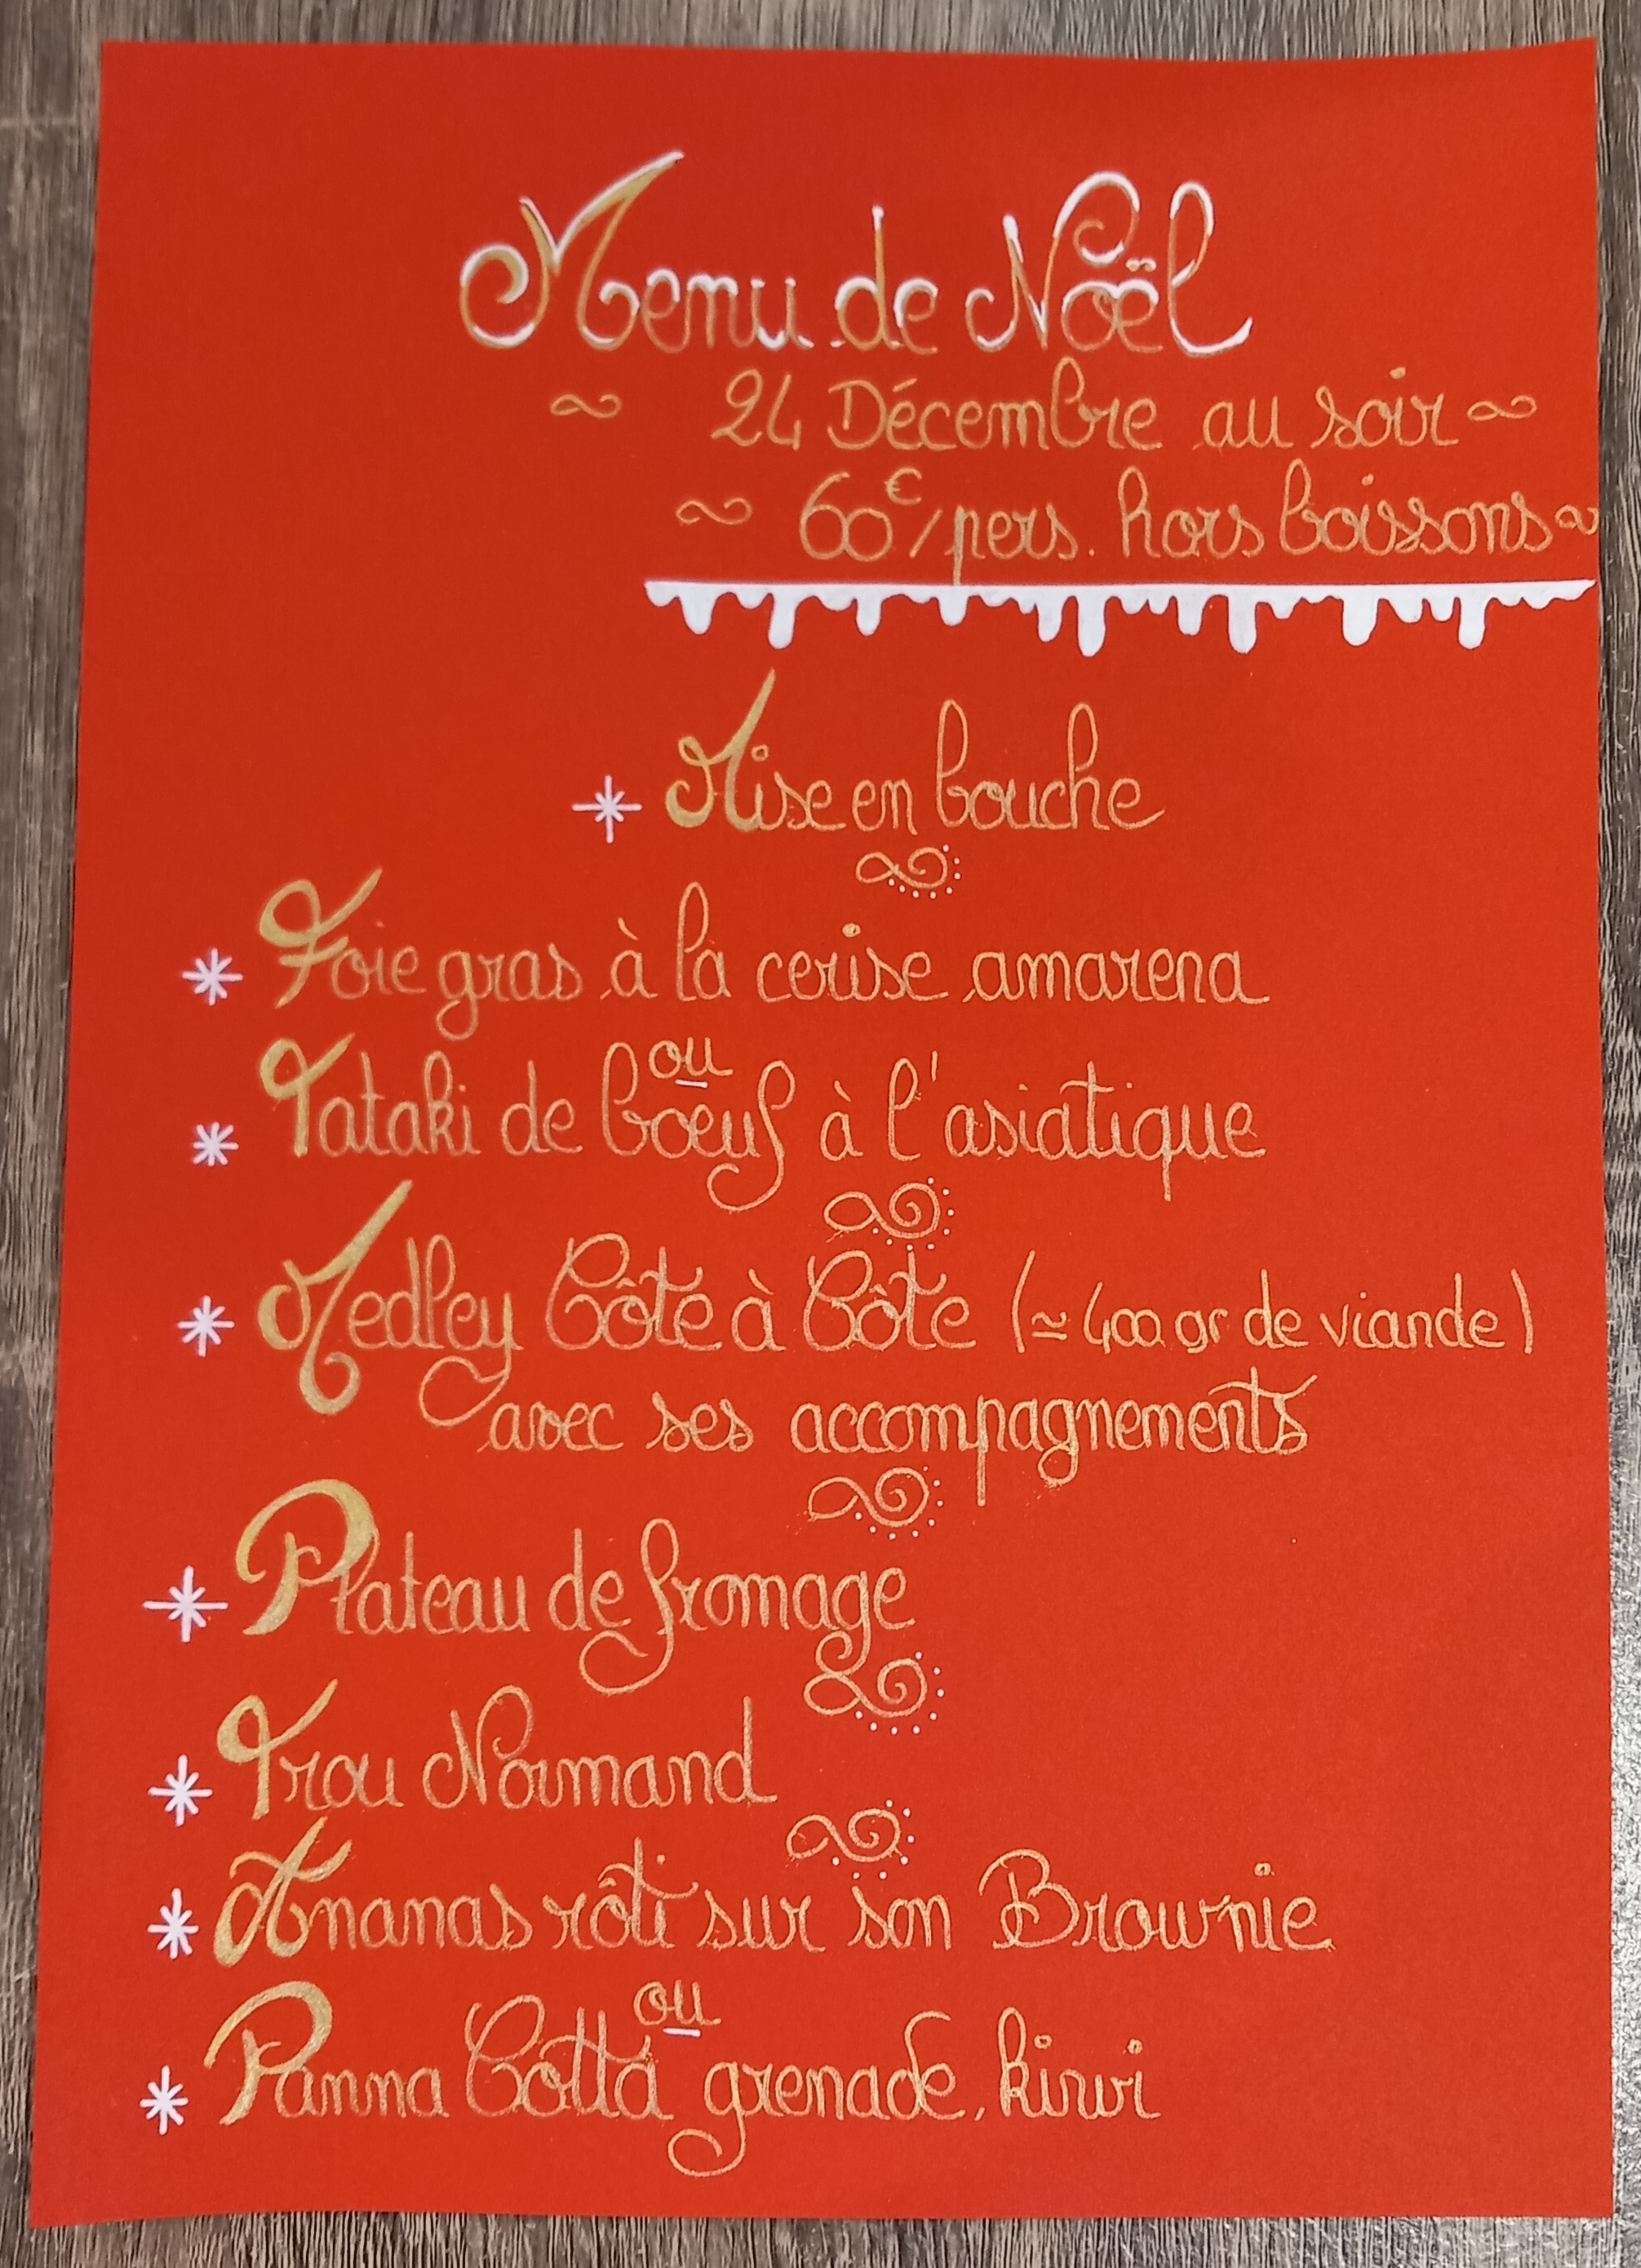 Menu de Noël
~ 24 Décembre au soir ~
~ 60€/pers. hors boissons ~
* Mise en bouche
* Foie gras à la cerise amarena
ou
* Tataki de bœuf à l'asiatique
* Medley Côte à Côte (≃ 400 gr de viande)
avec ses accompagnements
* Plateau de fromage
* Trou Normand
* Ananas rôti sur son Brownie
ou
* Panna Cotta grenade, kiwi